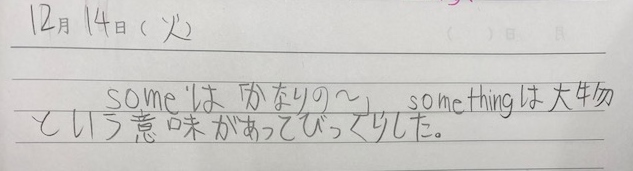 12月 14日(火)
someは「かなりの〜」 somethingは大物
という意味があってびっくりした。